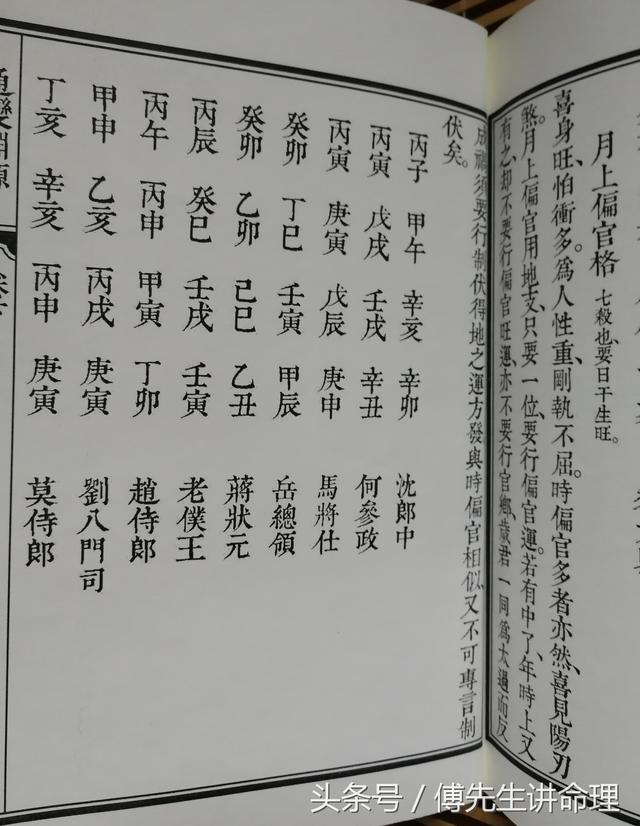 月上偏官格 七殺也要日干生旺。
喜身旺、怕衝多。為人性重、剛執不屈。時偏官多者亦然、喜見陽刃
煞。月上偏官用地支、只要一位、要行偏官運。若有中了、年時上又
有之、却不要行偏官旺運、亦不要行官鄉、歲君一同、為太過而反
成禍、須要行制伏得地之運方發、與時偏官相似、又不可專言制
伏矣。
丙子 甲午 辛亥 辛卯 沈郎中
丙寅 戊戌 壬戌 辛丑 何參政
丙寅 庚寅 戊辰 庚申 馬將仕
癸卯 丁巳 壬寅 甲辰 岳總領
癸卯 乙卯 己巳 乙丑 蔣狀元
丙辰 癸巳 壬戌 壬寅 老僕王
丙午 丙申 甲寅 丁卯 趙侍郎
甲申 乙亥 丙戌 庚寅 劉八門司
丁亥 辛亥 丙申 庚寅 莫侍郎
頭條號 / 傅先生講命理